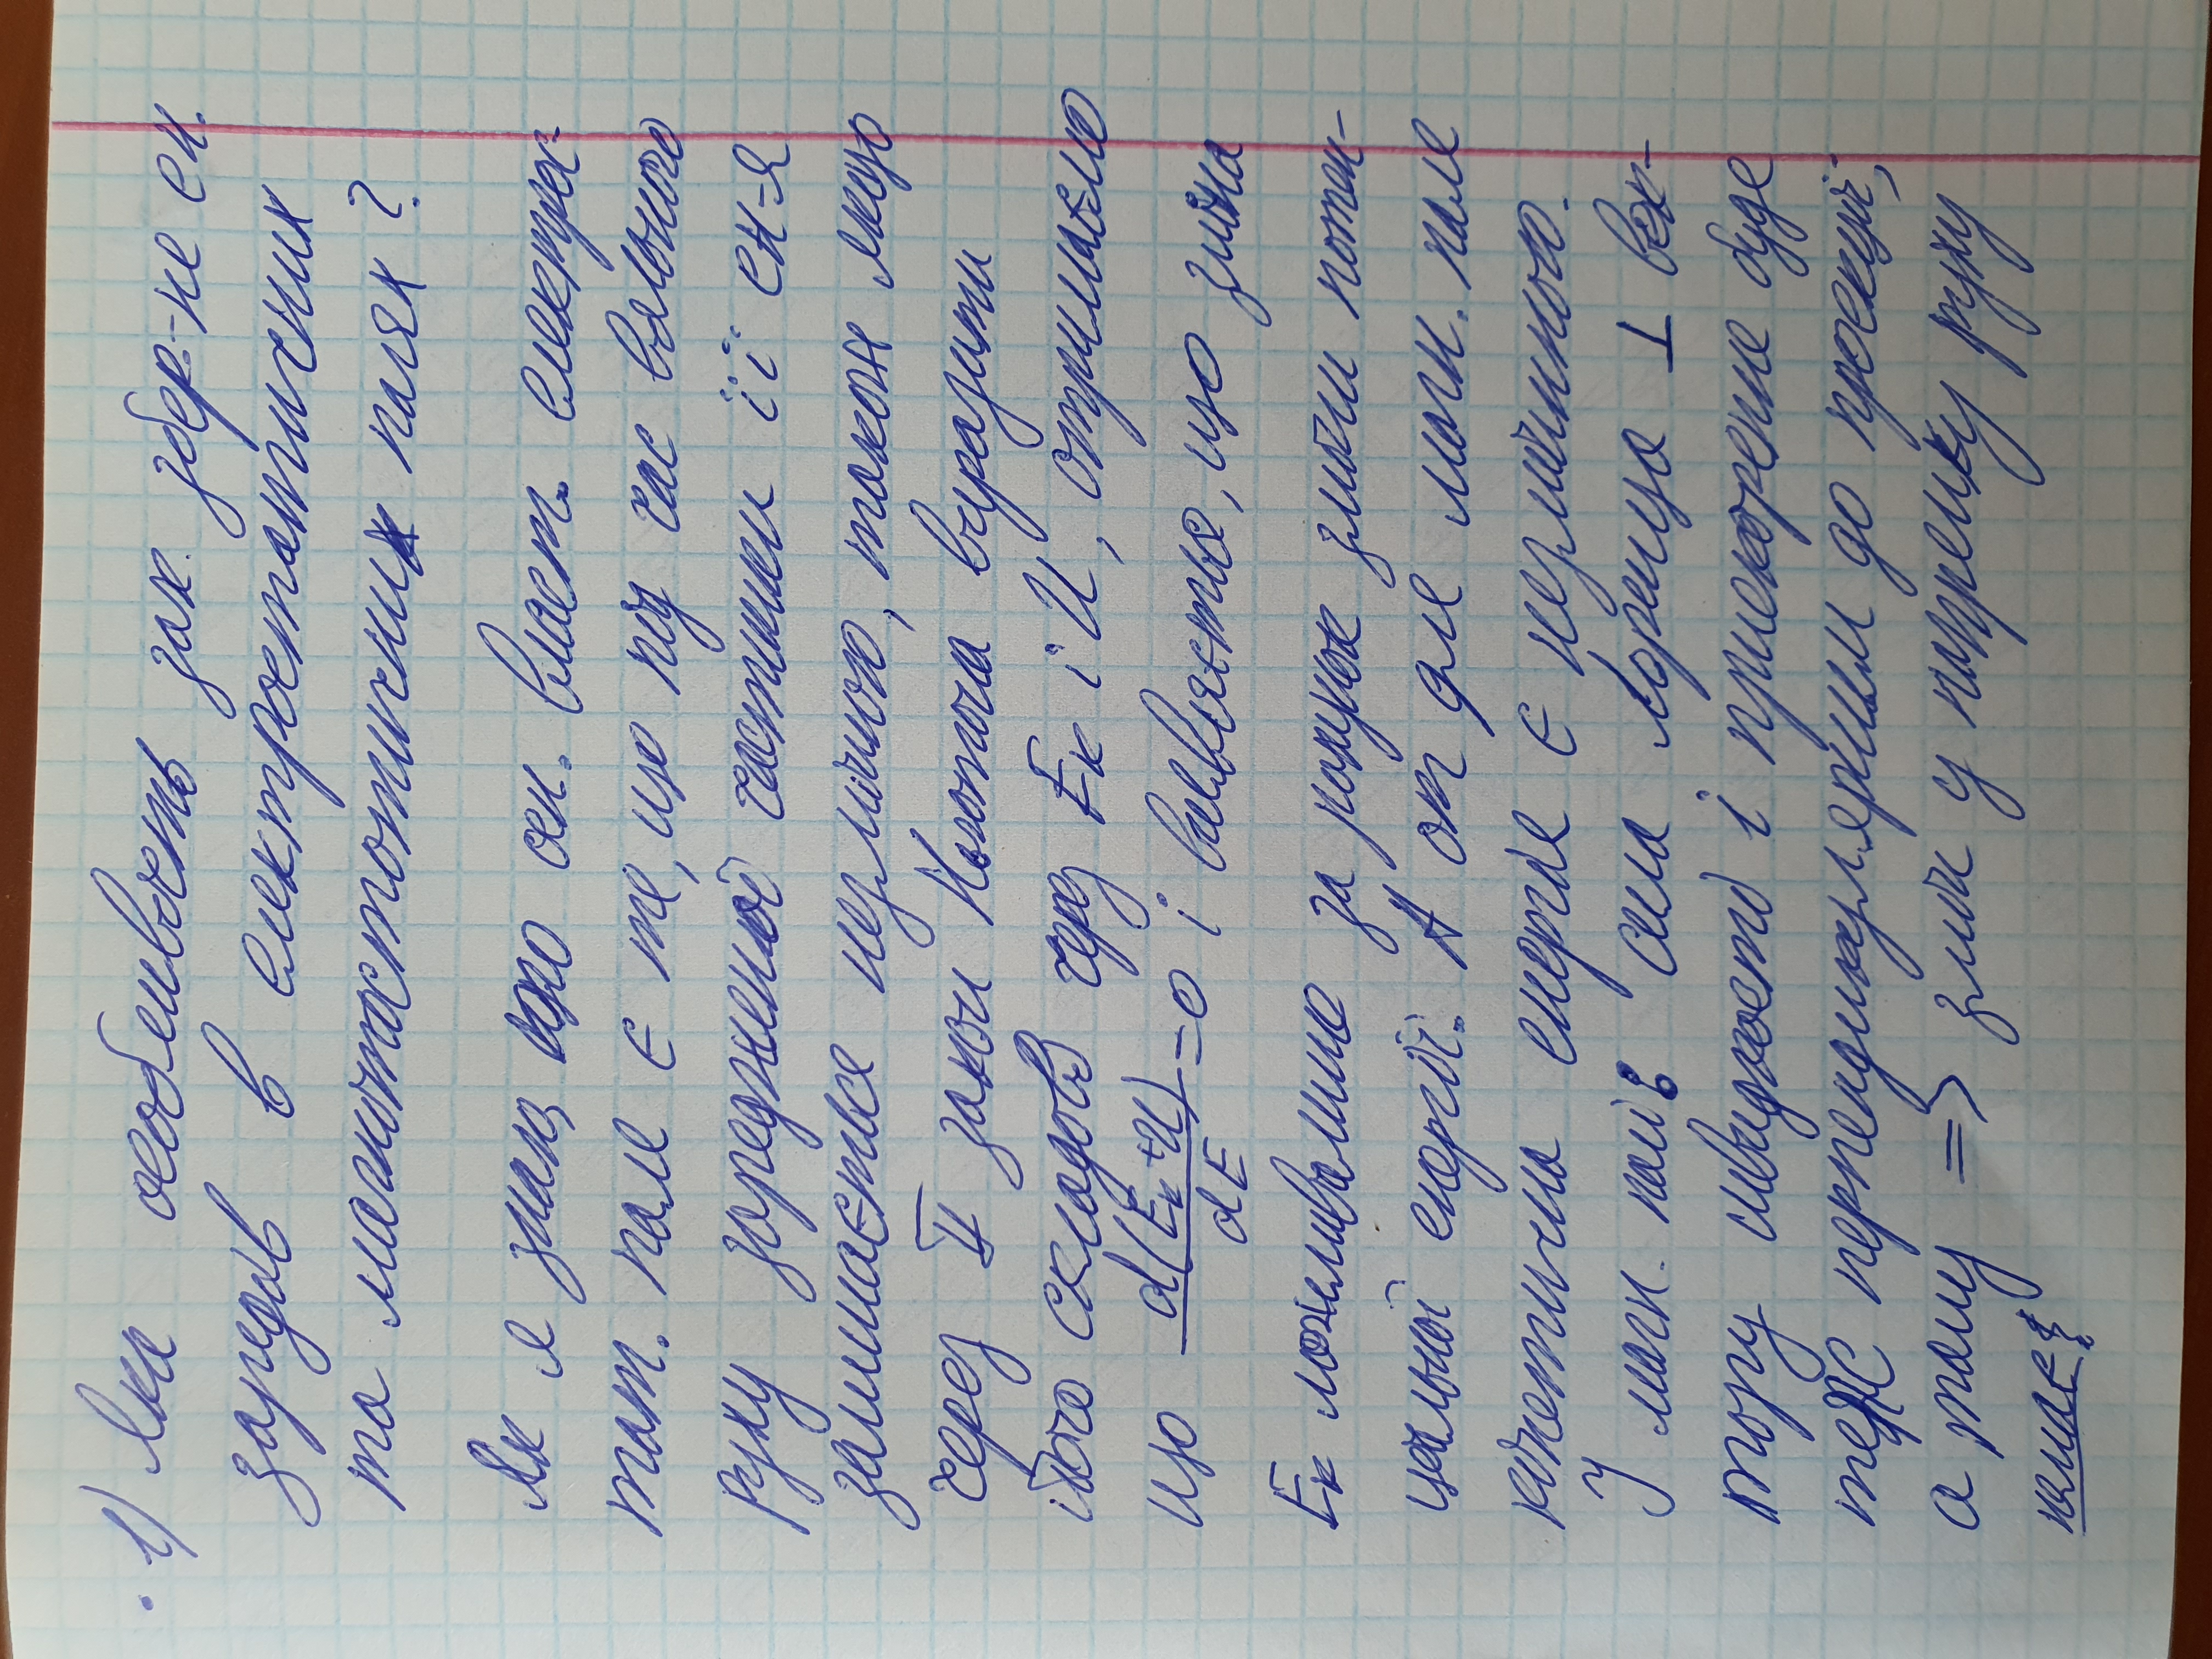 1) Яка особливість зак. збер-ня ен.
зарядів в електростатичних
та магнітостатичних полях?
Як я знаю, що осн. власт. електрос-
тат. поля є те, що під час вільного
руху зарядженої частинки її ен-я
залишається незмінною, також якщо
через II закон Ньютона виразити
його складові через Eк і U, отримаємо
що d(Eк+U)/dE = 0 і виявляється, що зміна
Eк можлива лише за рахунок зміни потен-
ціальної енергії. А от для магн. поля
кінетична енергія є незмінною.
У магн. полів сила Лоренца ⊥ век-
тору швидкості і прискорення буде
теж перпендикулярним до проекції,
а тому => змін у напрямку руху
немає